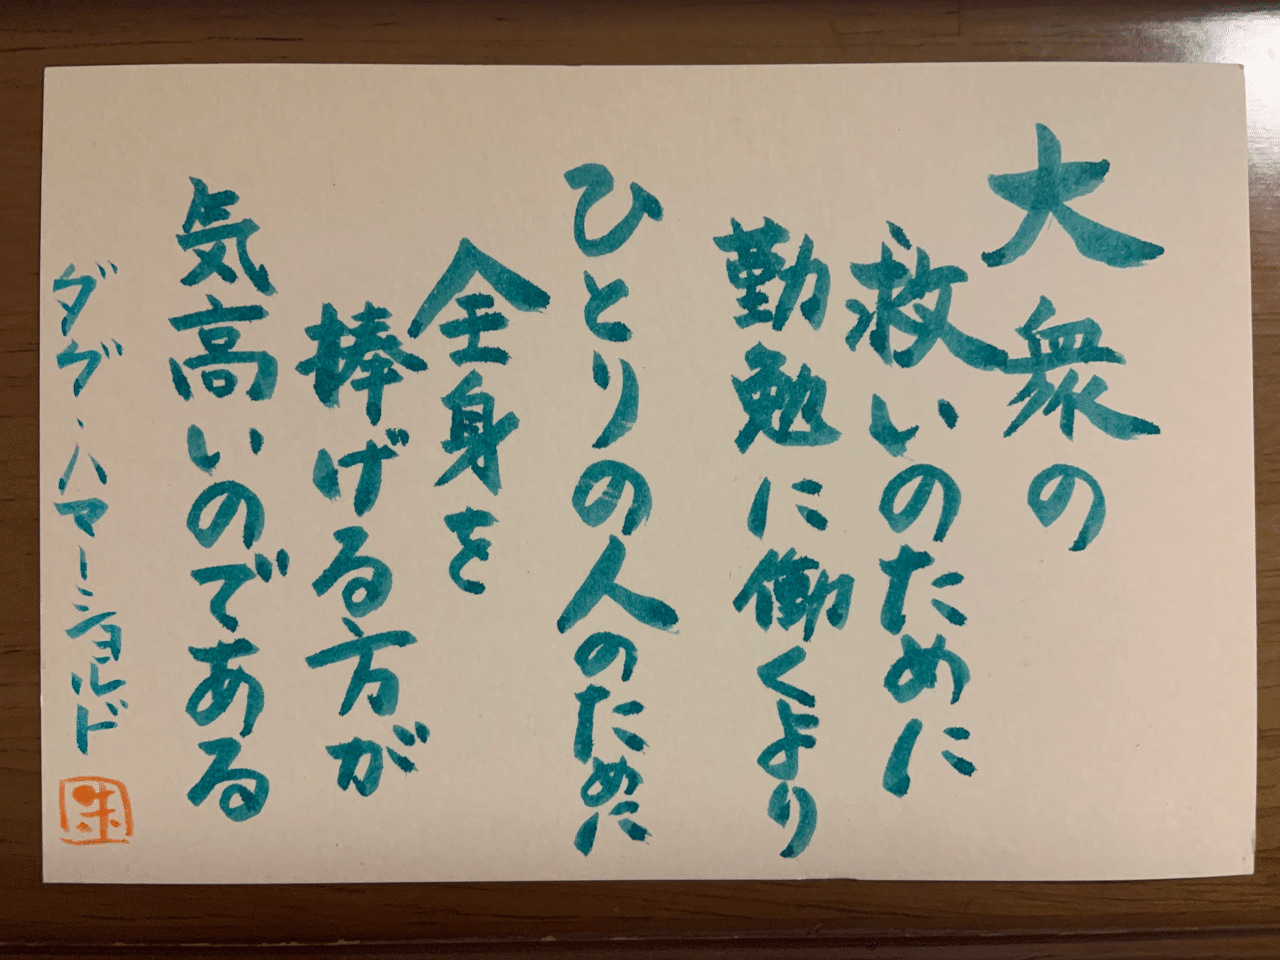 大衆の
救いのために
勤勉に働くより
ひとりの人のために
全身を
捧げる方が
気高いのである
ダグ・ハマーショルド